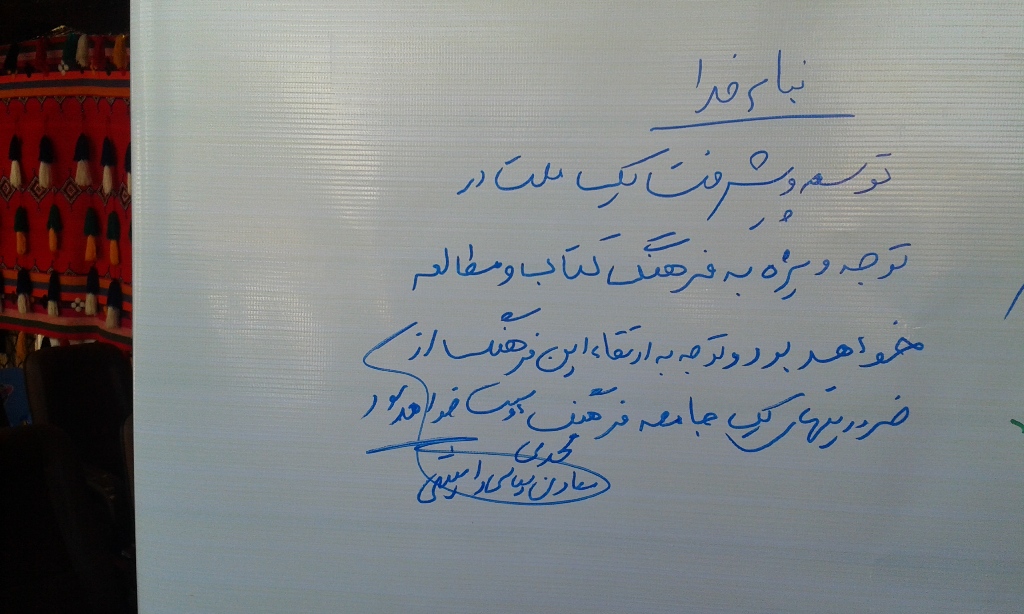 بنام خدا
توسعه و پیشرفت یک ملت در
توجه ویژه به فرهنگ کتاب و مطالعه
خواهد بود و توجه به ارتقاء این فرهنگ از
ضروریتهای یک جامعه فرهنگ دوست خواهد بود
محمدی
معاون سیاسی و امنیتی